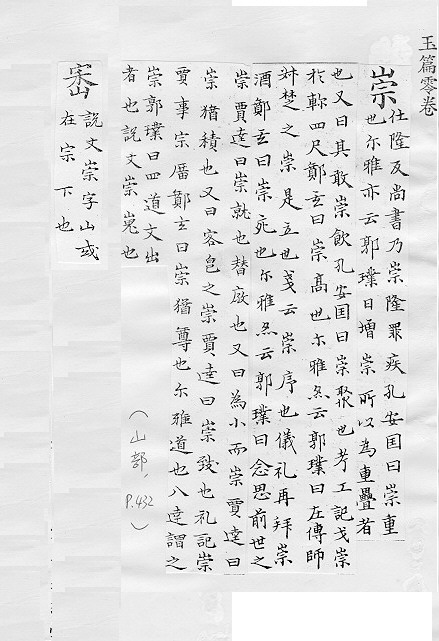 玉篇零卷
崇
仕隆反尚書乃崇隆罪疾孔安国曰崇重
也尔雅亦云郭璞曰增崇所以為重疊者
也又曰其敢崇飲孔安国曰崇聚也考工記戈崇
扵軫四尺鄭玄曰崇高也尔雅亦云郭璞曰左傳師
楚之崇是立也戔云崇序也儀礼再拜崇
酒鄭玄曰崇充也尔雅亦云郭璞曰念思前世之
崇賈逵曰崇就也替癈也又曰為小而崇賈逵曰
崇猶積也又曰容皃之崇賈逵曰崇發也礼記崇
賈事宗厝鄭玄曰崇猶尊也尔雅道也八逵謂之
崇郭璞曰四道文出
者也説文崇嵬也
崈
説文崇字山或
在宗下也
(山部, P.432)